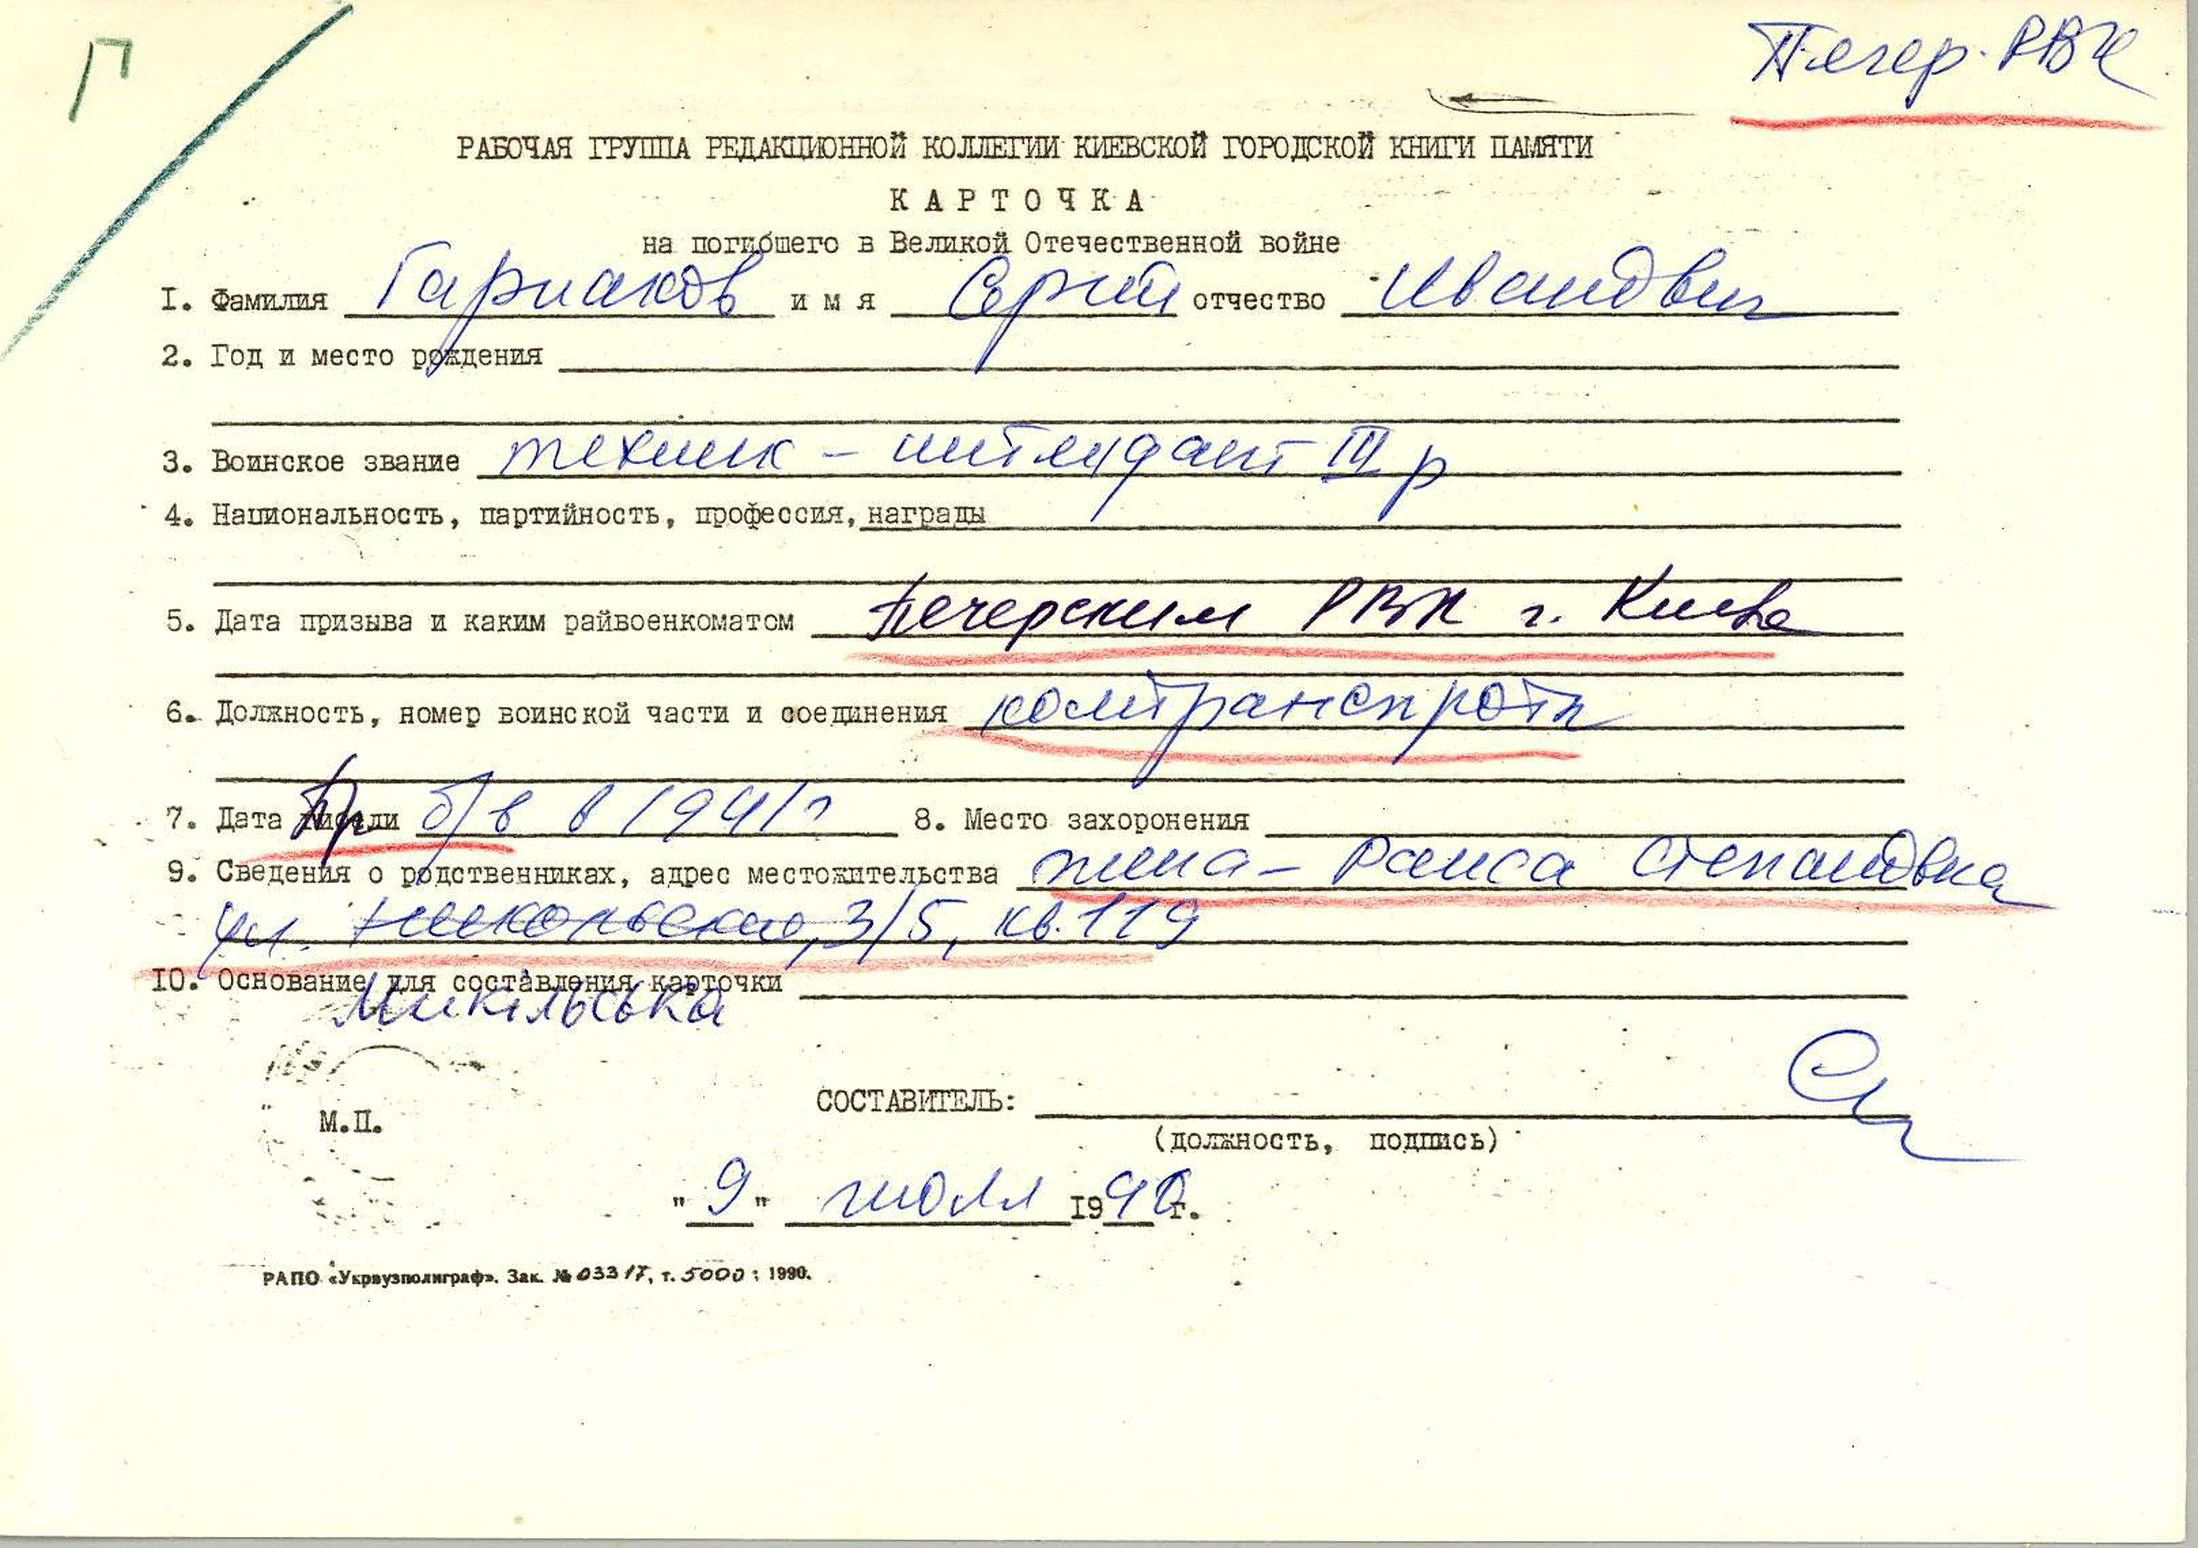 Г
Печер. РВК
РАБОЧАЯ ГРУППА РЕДАКЦИОННОЙ КОЛЛЕГИИ КИЕВСКОЙ ГОРОДСКОЙ КНИГИ ПАМЯТИ
КАРТОЧКА
на погибшего в Великой Отечественной войне
I. Фамилия имя Сергей отчество Иванович
2. Год и место рождения
3. Воинское звание техник - интендант III р
4. Национальность, партийность, профессия, награды
5. Дата призыва и каким райвоенкоматом Печерским РВК г. Киева
6. Должность, номер воинской части и соединения комтранспроты
7. Дата гибели Пр б/в в 1941г 8. Место захоронения
9. Сведения о родственниках, адрес местожительства жена - Раиса Степановна
ул. Никольская, 3/5, кв. 119
10. Основание для составления карточки
Микільська
М.П.
СОСТАВИТЕЛЬ:
(должность, подпись)
"9" июля 1990г.
РАПО «Укрвузполиграф». Зак. № 03317, т. 5000: 1990.